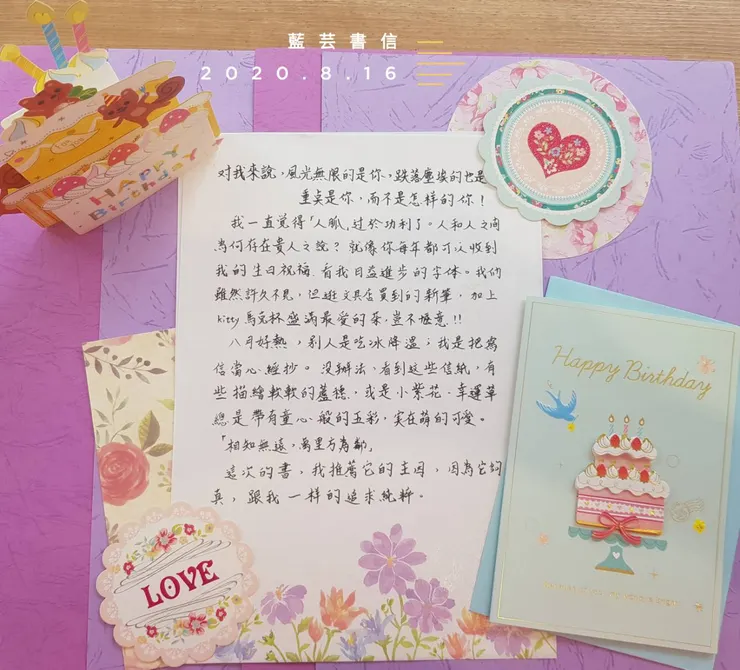 藍芸書信
2020.8.16
Happy Birthday
对我來說，風光無限的是你，跌落塵埃的也是
重点是你，而不是怎样的你！
我一直覺得「人脈」过於功利了。人和人之间
為何存在貴人之說？就像你每年都可以收到
我的生日祝福，看我日益進步的字体。我们
雖然許久不見，但逛文具店買到的新筆，加上
kitty馬克杯盛滿最愛的茶，豈不愜意!!
八月好熱，别人是吃冰降溫；我是把寫
信當心經抄。沒辦法，看到这些信紙，有
些描繪軟軟的蘆穗，或是小紫花、幸運草
總是帶有童心一般的五彩，实在萌的可愛。
「相知無遠，萬里方為鄰」
這次的書，我推薦它的主因，因為它夠
真，跟我一样的追求純粹。
LOVE
Happy Birthday